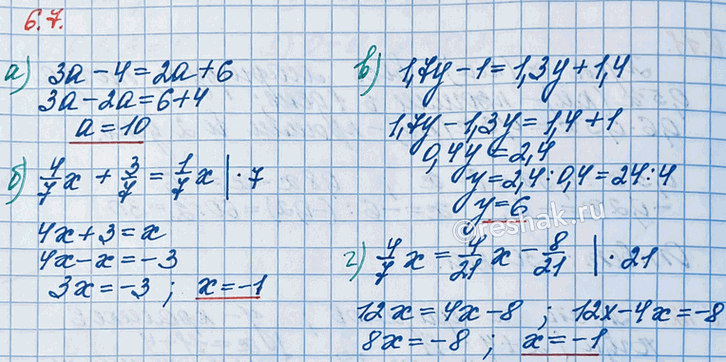 6.7.
а) 3a - 4 = 2a + 6
3a - 2a = 6 + 4
a = 10
б) 4/7 x + 3/7 = 1/7 x | · 7
4x + 3 = x
4x - x = -3
3x = -3 ; x = -1
в) 1,7y - 1 = 1,3y + 1,4
1,7y - 1,3y = 1,4 + 1
0,4y = 2,4
y = 2,4 : 0,4 = 24 : 4
y = 6
г) 4/7 x = 4/21 x - 8/21 | · 21
12x = 4x - 8 ; 12x - 4x = -8
8x = -8 ; x = -1
©reshak.ru